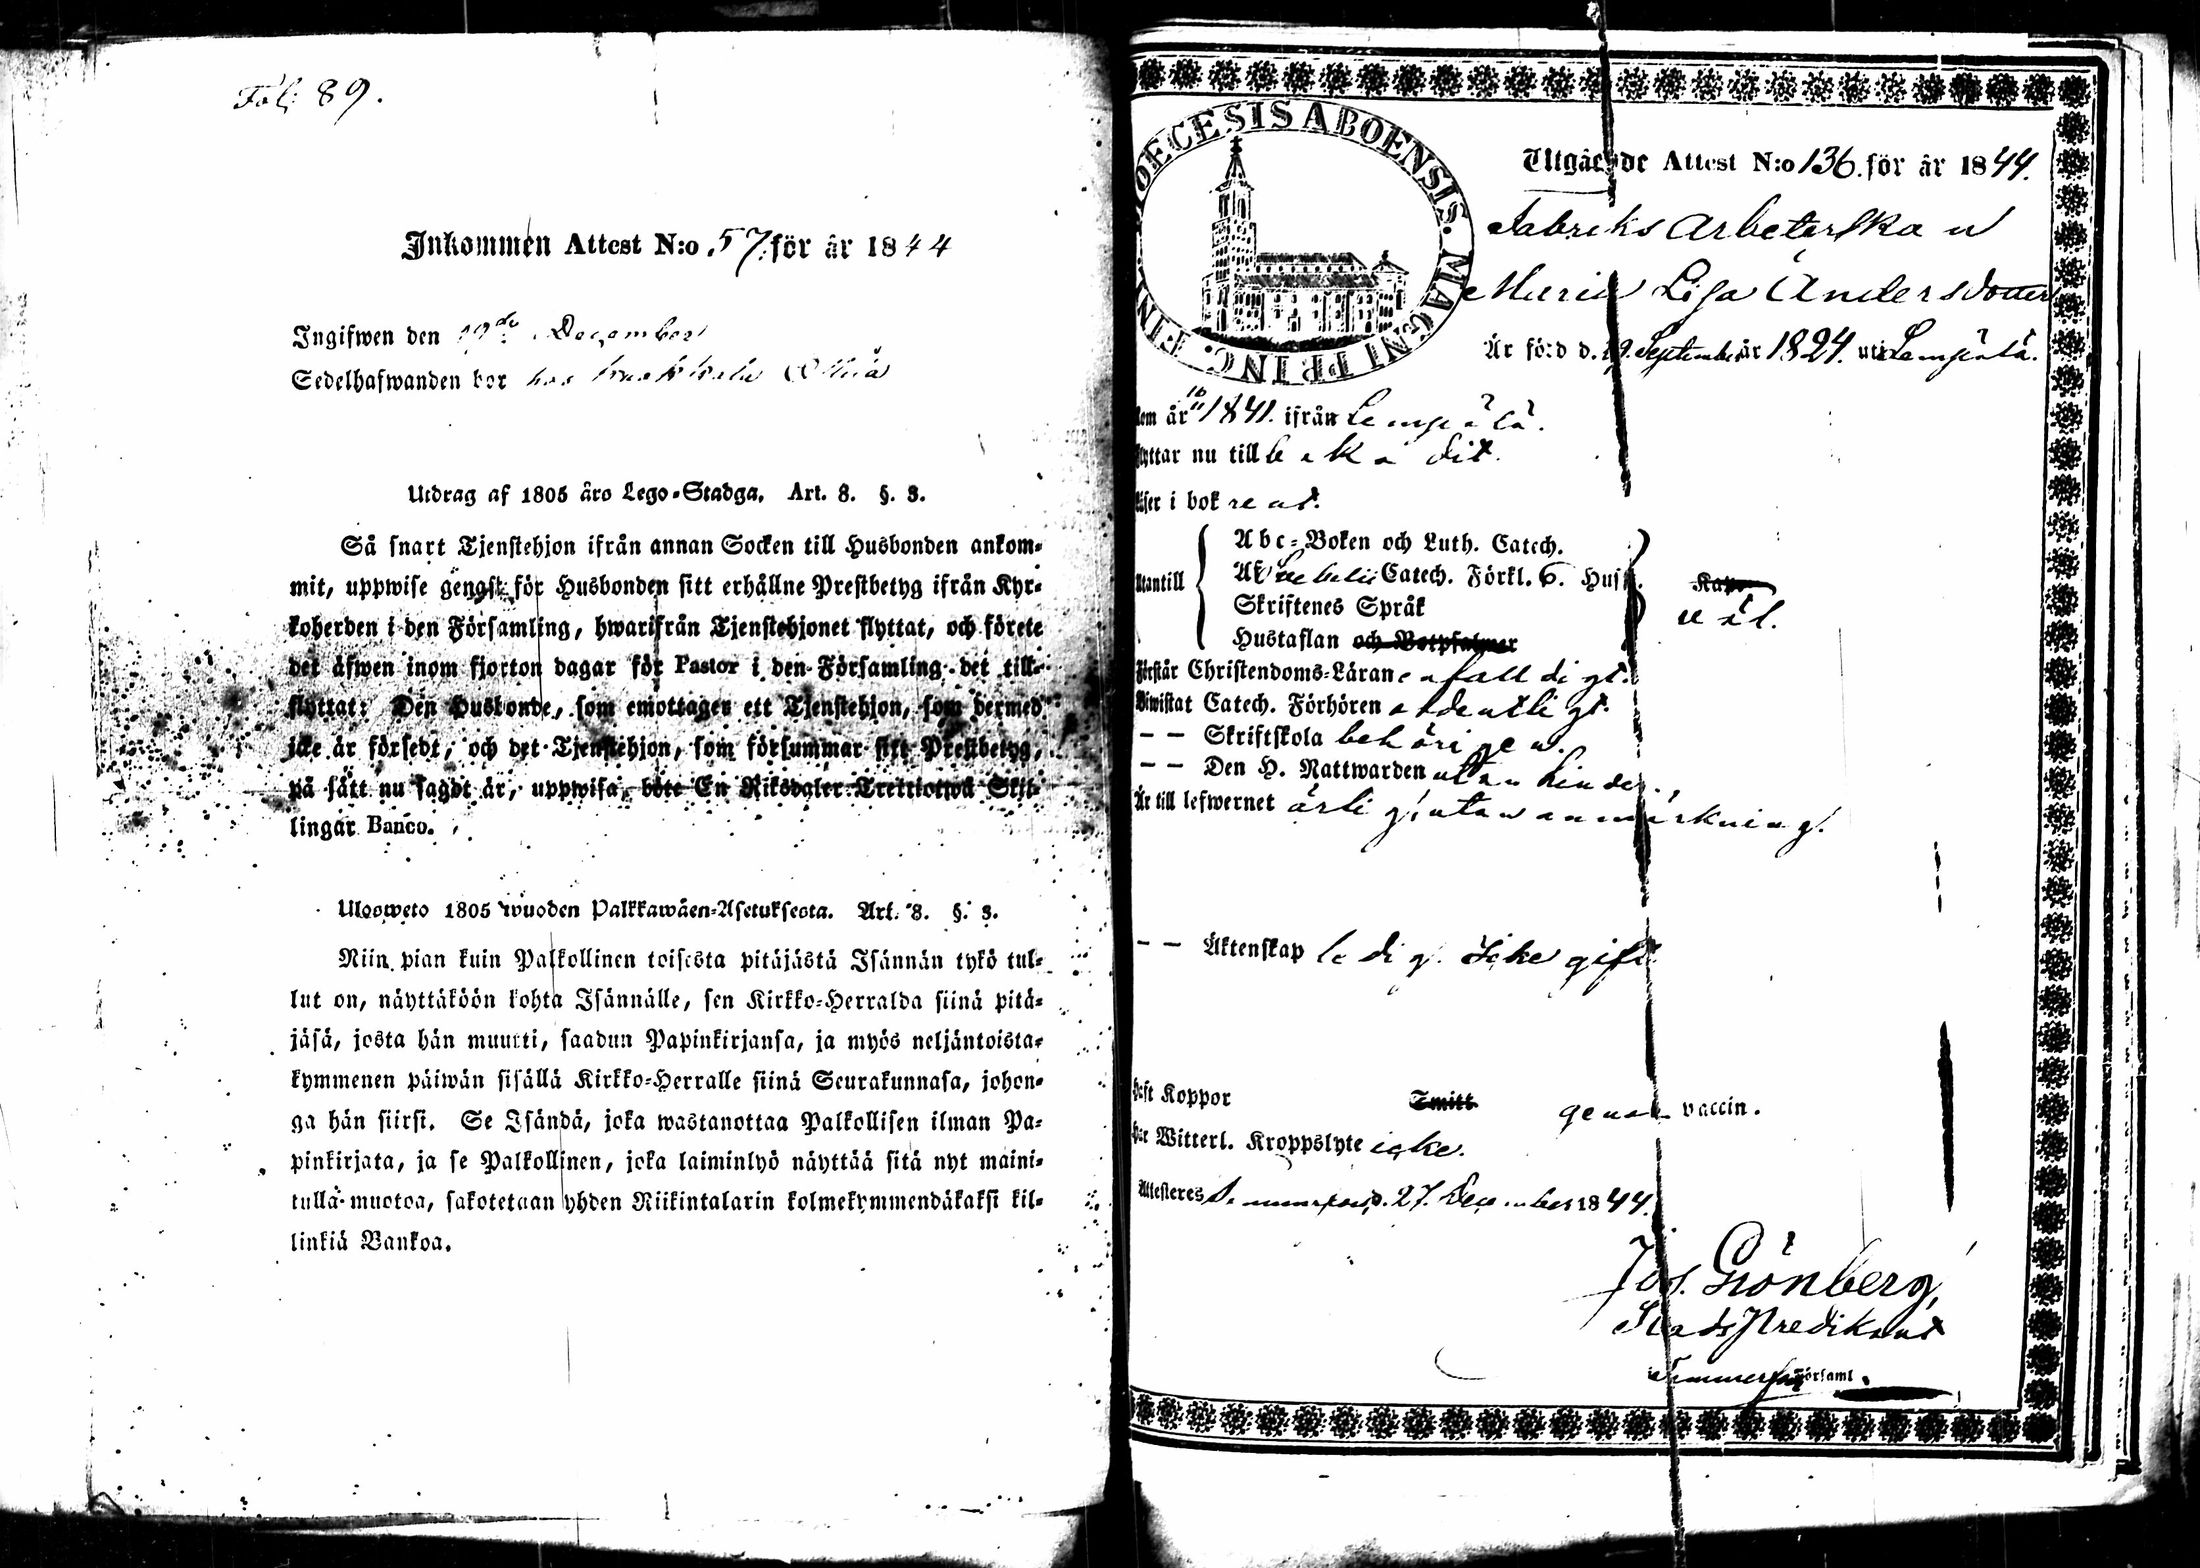 Fol: 89.
Inkommen Attest N:o 57 för år 1844
Ingifwen den 29de December
Sedelhafwanden bor hos
Utdrag af 1805 års Lego-Stadga. Art. 8. §. 3.
Så snart Tjenstehjon ifrån annan Socken till Husbonden ankom-
mit, uppwise gengst för Husbonden sitt erhållne Prestbetyg ifrån Kyr-
koherden i den Församling, hwarifrån Tjenstehjonet flyttat, och förete
det äfwen inom fjorton dagar för Pastor i den Församling det till-
flyttat: Den Husbonde, som emottager ett Tjenstehjon, som dermed
icke är försedt, och det Tjenstehjon, som försummar sitt Prestbetyg,
på sätt nu sagdt är, uppwisa, böte En Riksdaler Trettiotwå Skil-
lingar Banco.
Uloswetto 1805 wuoden Palkkawäen-Asetuksesta. Art. 8. §. 3.
Niin pian kuin Palkollinen toisesta pitäjästä Isännän tykö tul-
lut on, näyttäköön kohta Isännälle, sen Kirkko-Herralda siinä pitä-
jäsä, josta hän muutti, saadun Papinkirjansa, ja myös neljäntoista-
kymmenen päiwän sisällä Kirkko-Herralle siinä Seurakunnasa, johon-
ga hän siirsi. Se Isändä, joka wastanottaa Palkollisen ilman Pa-
pinkirjata, ja se Palkollinen, joka laiminlyö näyttää sitä nyt maini-
tulla muotoa, sakotetaan yhden Riikintalarin kolmekymmendäkaksi kil-
linkiä Bankoa.
DIOECESIS ABOENSIS. MAGNI PRINC. FINL.
Utgående Attest N:o 136. för år 1844.
Fabriks Arbeterskan
Maria Lisa Andersdotter
Är född d. 29. September år 1824. uti Lempälä.
Kom år 18/11 1841. ifrån Lempälä.
Flyttar nu tillbaka dit.
Läser i bok rent.
Utantill
Abc-Boken och Luth. Catech.
Af Svebelii Catech. Förkl. 6. Husf.
Skriftenes Språk
Hustaflan och Botpsalmer
väl.
Förstår Christendoms-Läran enfaldigt.
Biwistat Catech. Förhören ordentligt.
— — Skriftskola behörigen.
— — Den H. Nattwarden utan hinder.
Är till lefwernet ärlig, utan anmärkning.
— — Äktenskap ledig. Icke gift.
Haft Koppor Smitt genom vaccin.
Har Witterl. Kroppslyte icke.
Attesteres Tammerfors d. 27. December 1844.
Jos. Grönberg,
StadsPredikant
Tammerfors Församl.